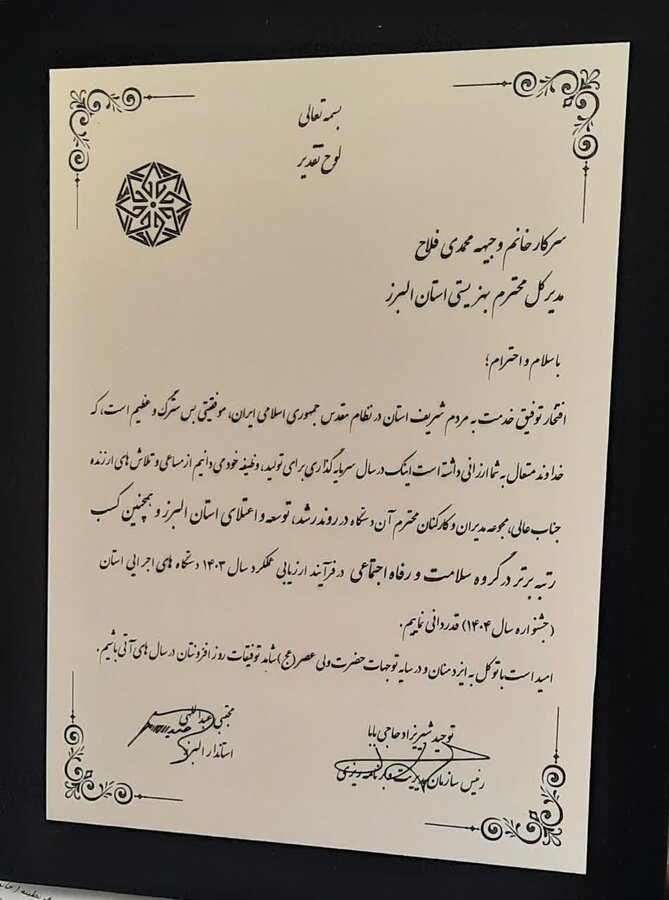 بسمه تعالی
لوح تقدیر
سرکار خانم وجیهه محمدی فلاح
مدیرکل محترم بهزیستی استان البرز
با سلام و احترام؛
افتخار توفیق خدمت به مردم شریف استان در نظام مقدس جمهوری اسلامی ایران، موفقیتی بس سترگ و عظیم است، که
خداوند متعال به شما ارزانی داشته است اینک در سال سرمایه گذاری برای تولید، وظیفه خود می دانیم از مساعی و تلاش های ارزنده
جناب عالی، مجموعه مدیران و کارکنان محترم آن دستگاه در روند رشد، توسعه و اعتلای استان البرز و همچنین کسب
رتبه برتر در گروه سلامت و رفاه اجتماعی در فرآیند ارزیابی عملکرد سال ۱۴۰۳ دستگاه های اجرایی استان
(جشنواره سال ۱۴۰۴) قدردانی نماییم.
امید است با توکل به ایزد منان و در سایه توجهات حضرت ولی عصر (عج) شاهد توفیقات روز افزونتان در سال های آتی باشیم.
توحید شیرزاد حاجی بابا
رئیس سازمان مدیریت و برنامه ریزی
مجتبی عبداللهی
استاندار البرز